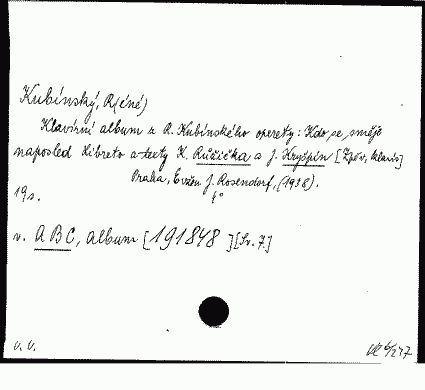 Kubínský, R(éné)
Klavírní album z R. Kubínského operety: Kdo se směje
naposled Libreto a texty K. Růžička a J. Kryšpín [Zpěv, klavír]
Praha, Evžen J. Rosendorf, (1938).
19s. 4°
v. ABC, album [191848] [Sv. 7.]
v. v.